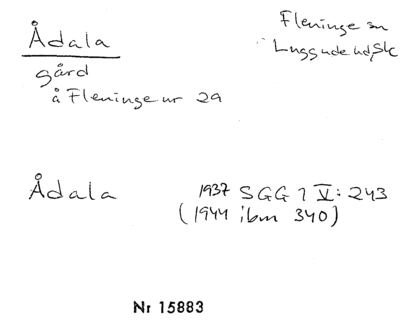 Ådala
Fleninge sn
Luggude hd, Sk
gård
å Fleninge nr 29
Ådala
1937 SGG 1 V: 243
(1944 ibm 340)
Nr 15883